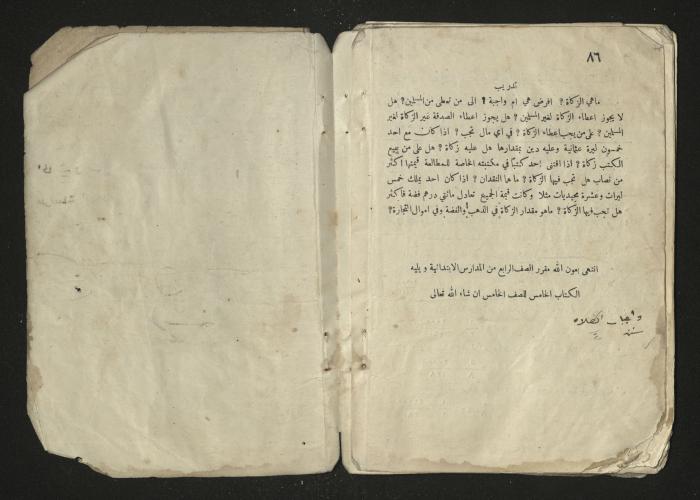 ٨٦
تدريب
ماهي الزكاة؟ افرض هي ام واجبة؟ الى من تعطى من المسلمين؟ هل
لا يجوز اعطاء الزكاة لغير المسلمين؟ هل يجوز اعطاء الصدقة غير الزكاة لغير
المسلمين؟ على من يجب اعطاء الزكاة؟ في اي مال تجب؟ اذا كان مع احد
خمسون ليرة عثمانية وعليه دين بمقدارها هل عليه زكاة؟ هل على من يبيع
الكتب زكاة؟ اذا اقتنى احد كتبًا في مكتبته الخاصة للمطالعة قيمتها اكثر
من نصاب هل تجب فيها الزكاة؟ ما هما النقدان؟ اذا كان احد يملك خمس
ليرات وعشرة مجيديات مثلا وكانت قيمة الجميع تعادل مائتي درهم فضة فأكثر
هل تجب فيها الزكاة؟ ماهو مقدار الزكاة في الذهب والفضة وفي اموال التجارة؟
انتهى بعون الله مقرر الصف الرابع من المدارس الابتدائية ويليه
الكتاب الخامس للصف الخامس ان شاء الله تعالى